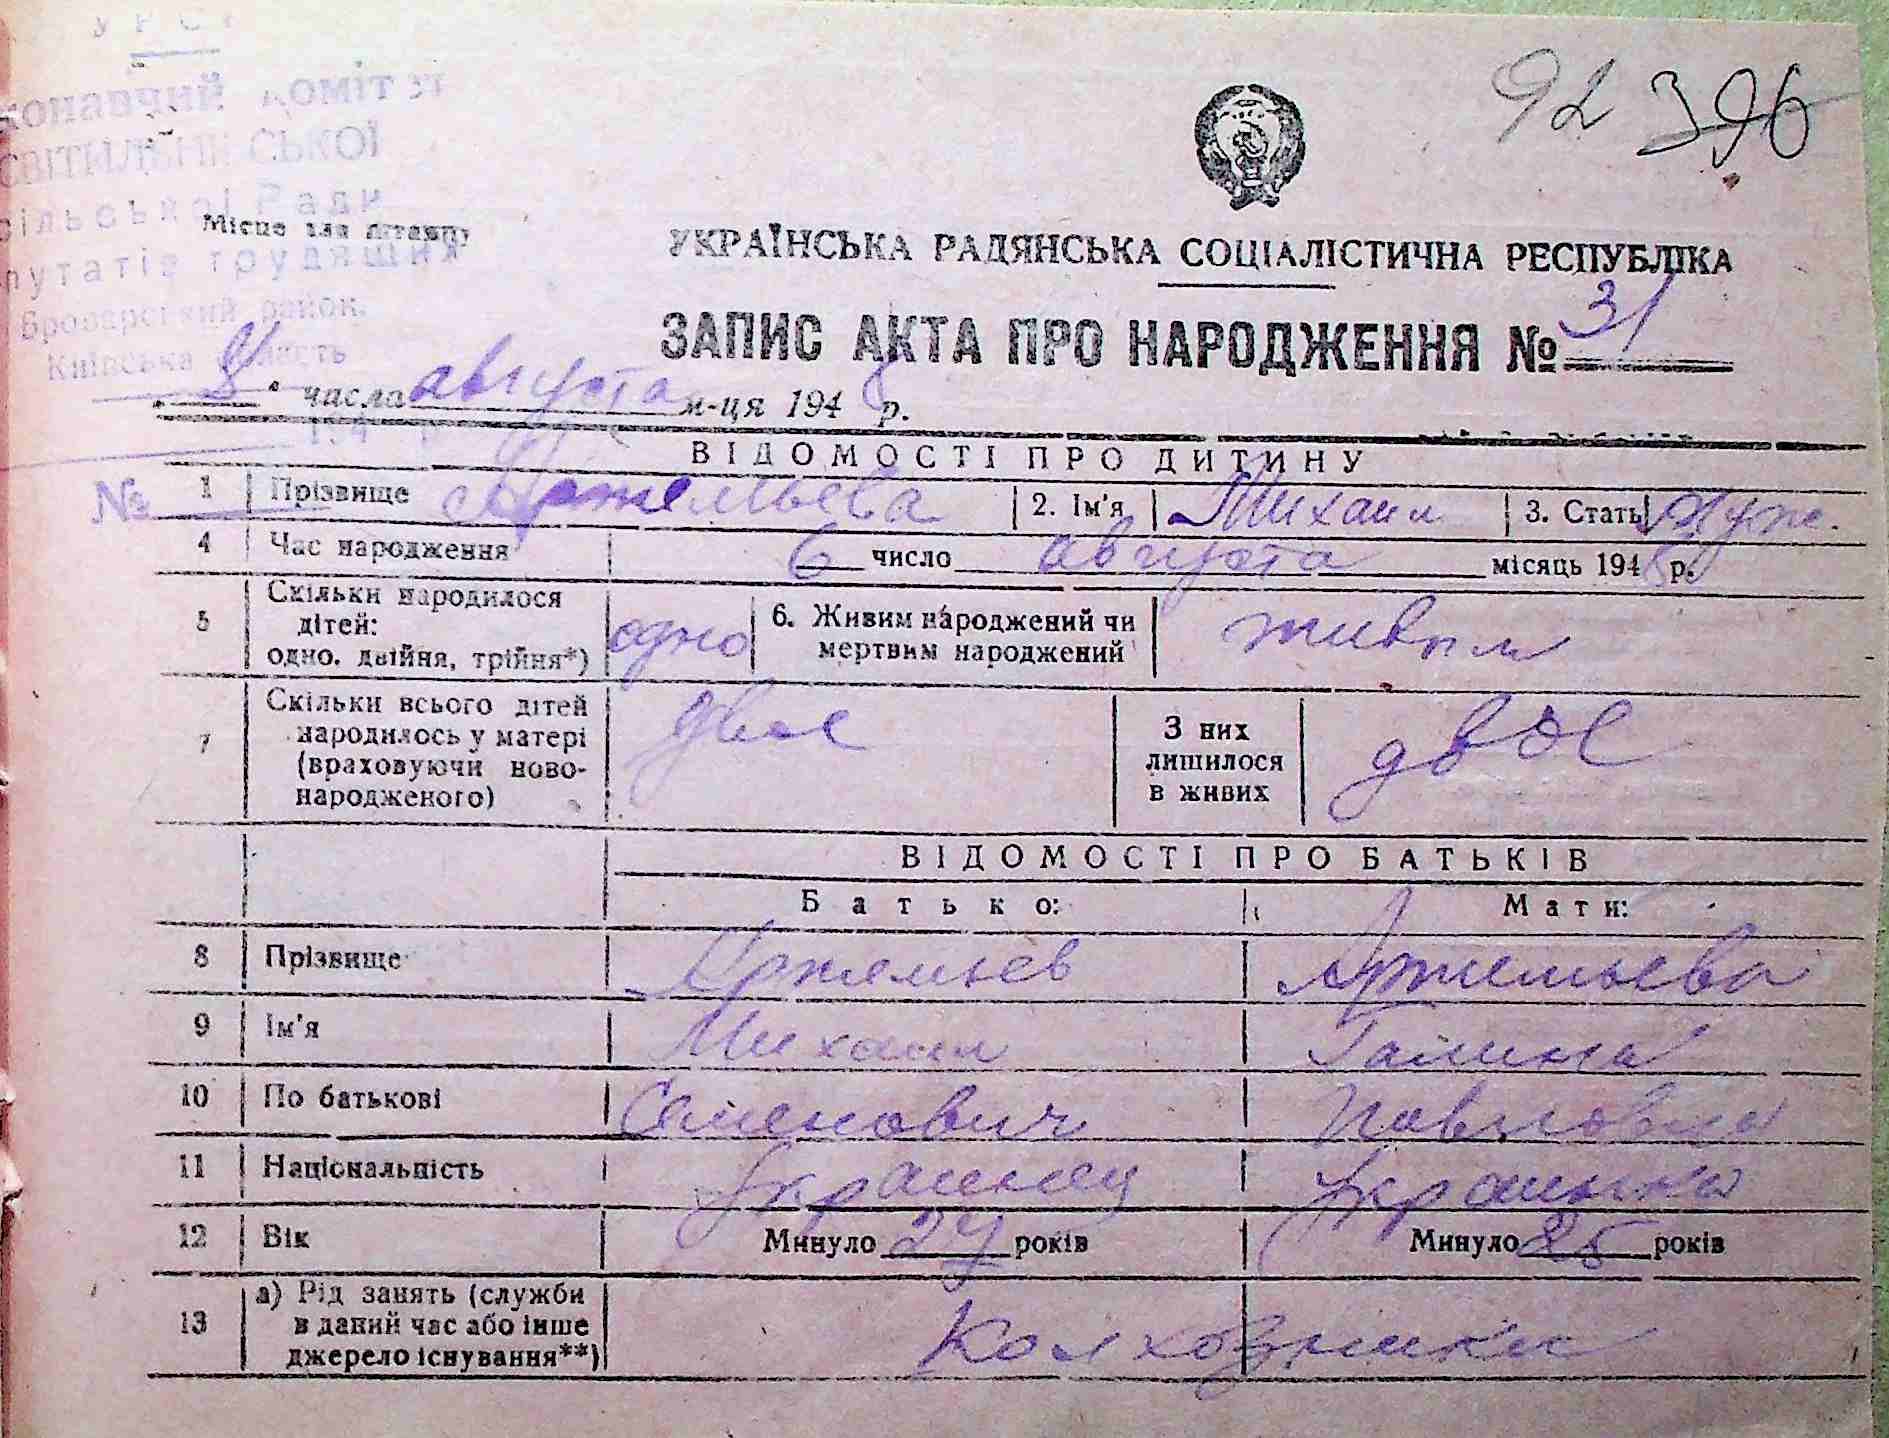 УРСР
конавчий Комітет
СВІТИЛЬНІВСЬКОЇ
сільської Ради
путатів трудящих
Броварський район,
Київська область
194 р
№
92 396
Місце для штампу
УКРАЇНСЬКА РАДЯНСЬКА СОЦІАЛІСТИЧНА РЕСПУБЛІКА
ЗАПИС АКТА ПРО НАРОДЖЕННЯ № 31
8 числа августа м-ця 1948 р.
ВІДОМОСТІ ПРО ДИТИНУ
1 Прізвище Артемьева 2. Ім'я Михаил 3. Стать Муж.
4 Час народження 6 число августа місяць 1948 р.
5 Скільки народилося дітей: одно, двійня, трійня*) одно 6. Живим народжений чи мертвим народжений живым
7 Скільки всього дітей народилось у матері (враховуючи новонародженого) двое З них лишилося в живих двое
ВІДОМОСТІ ПРО БАТЬКІВ
Батько: Мати:
8 Прізвище Артемьев Артемьева
9 Ім'я Михаил Галина
10 По батькові Семенович Павловна
11 Національність Украинец Украинка
12 Вік Минуло років Минуло 25 років
13 а) Рід занять (служби в даний час або інше джерело існування**) Колхозники